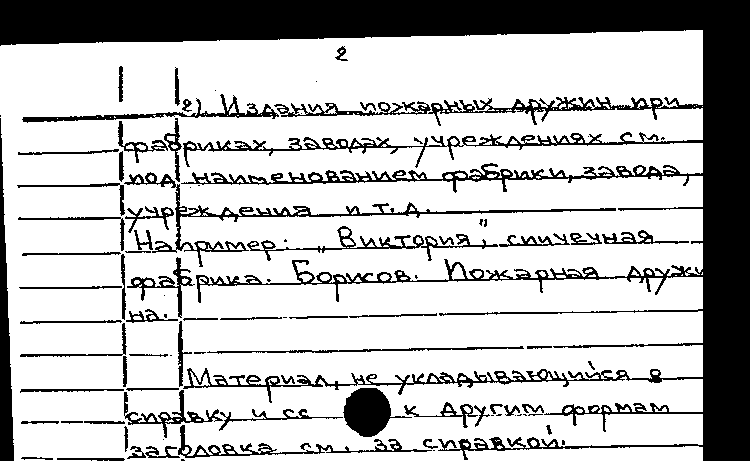 2
2). Издания пожарных дружин при
фабриках, заводах, учреждениях см.
под наименованием фабрики, завода,
учреждения и т.д.
Например: „Виктория", спичечная
фабрика. Борисов. Пожарная дружи
на.
Материал, не укладывающийся в
справку и сс к другим формам
заголовка см. за справкой.